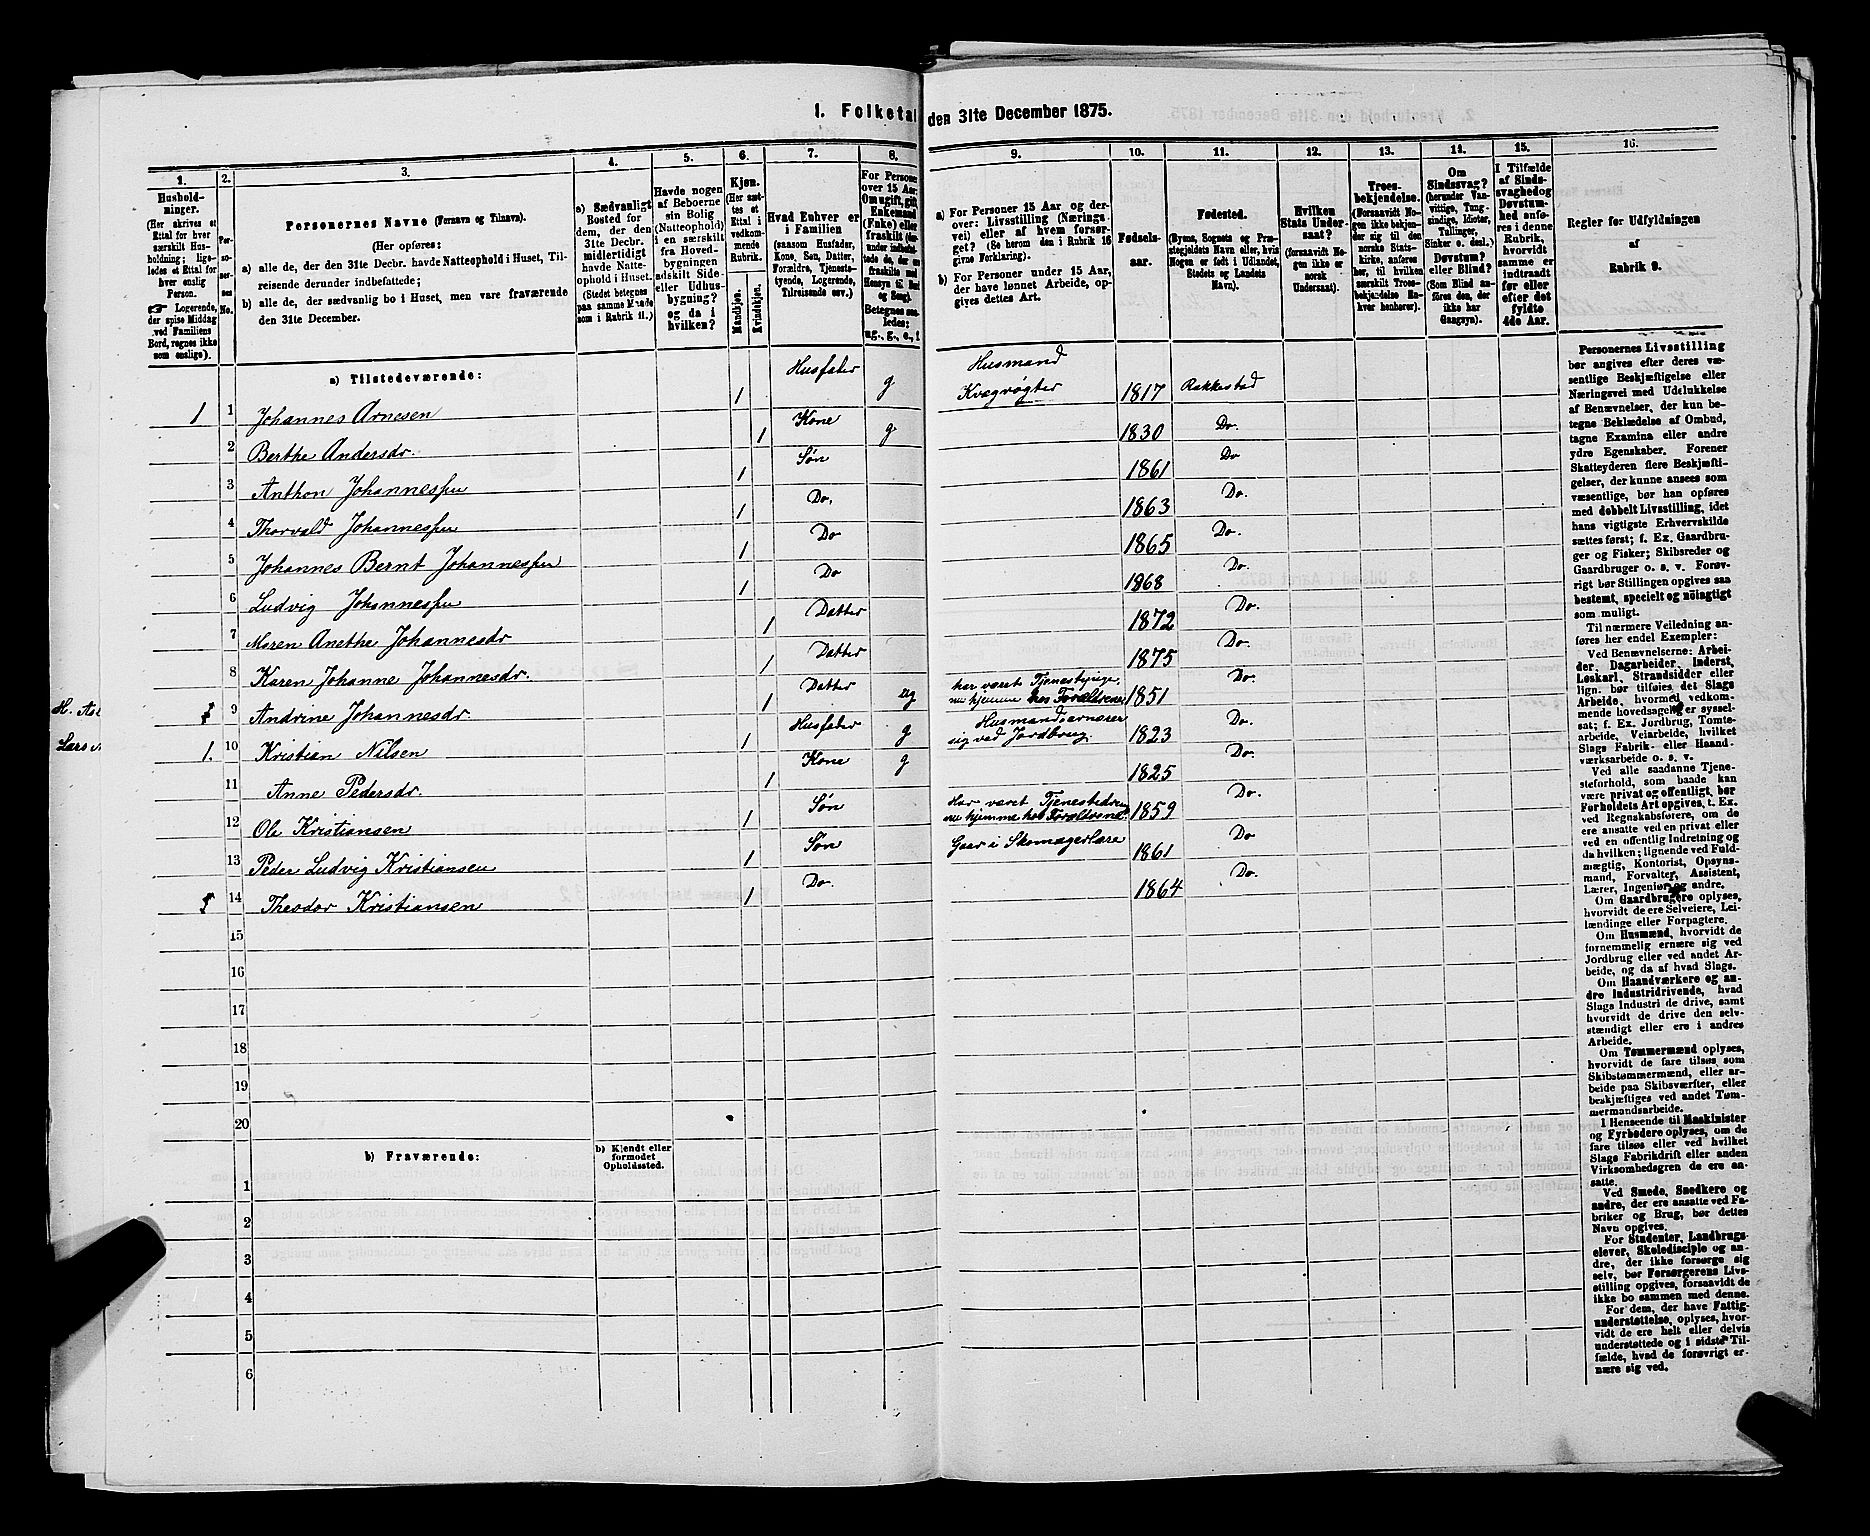 1. Folketal den 31te December 1875.
1. 2. 3. 4. 5. 6. 7. 8. 9. 10. 11. 12. 13. 14. 15. 16.
Hushold-
ninger.
(Her skrives et
Ettal for hver
særskilt Hus-
holdning; lige-
ledes et Ettal for
hver enslig
Person.
Logerende,
der spise Middag
ved Familiens
Bord, regnes ikke
som enslige).
Per-
so-
ner-
nes
No.
Personernes Navne (Fornavn og Tilnavn).
(Her opføres:
a) alle de, der den 31te Decbr. havde Natteophold i Huset, Til-
reisende derunder indbefattede;
b) alle de, der sædvanlig bo i Huset, men vare fraværende
den 31te December.
a) Sædvanligt
Bosted for
dem, der den
31te Decbr.
midlertidigt
havde Natte-
ophold i Huset.
(Stedet betegnes
paa samme Maade
som i Rubrik 11.)
Havde nogen
af Beboerne
sin Bolig
(Natteophold)
i en særskilt
fra Hoved-
bygningen
adskilt Side-
eller Udhus-
bygning?
og da i
hvilken?
Kjøn.
(Her sæt-
tes et
Ettal i
vedkom-
mende
Rubrik.
Mandkjøn.
Kvindkjøn.
Hvad Enhver er
i Familien
(saasom Husfader,
Kone, Søn, Datter,
Forældre, Tjeneste-
tyende, Logerende,
Tilreisende osv.)
For Personer
over 15 Aar:
Om ugift, gift,
Enkemand
(Enke) eller
fraskilt
Betegnes saa-
ledes:
ug., g., e., f.
a) For Personer 15 Aar og der-
over: Livsstilling (Nærings-
vei) eller af hvem forsør-
get? (Se herom den i Rubrik 16
givne Forklaring).
b) For Personer under 15 Aar,
der have lønnet Arbeide, op-
gives dettes Art.
Fødsels-
aar.
Fødested.
(Byens, Sognets og Præ-
stegjeldets Navn eller, hvis
Nogen er født i Udlandet,
Stedets og Landets
Navn).
Hvilken
Stats Under-
saat?
(forsaavidt No-
gen ikke er
norsk
Undersaat).
Troes-
bekjendelse.
(Forsaavidt No-
gen ikke bekjen-
der sig til den
norske Stats-
kirke, anføres
her, til hvilken
særskilt Troes-
bekjendelse En-
hver henhører).
Om
Sindssvag?
(herunder Van-
vittige, Tung-
sindige, Idioter,
Tullinger,
Sinker o. desl.)
Døvstum?
eller Blind?
(Som Blind an-
føres den, der
ikke har
Gangsyn).
I Tilfælde
af Sinds-
svaghed og
Døvstum-
hed anfø-
res i denne
Rubrik,
hvorvidt
samme er
indtraadt
før eller
efter det
fyldte
4de Aar.
Regler for Udfyldningen
af
Rubrik 9.
a) Tilstedeværende:
1 1 Johannes Arnesen 1 Husfader g Husmand Kvægrøgter 1817 Rakkestad
2 Berthe Andersdr. 1 Kone g 1830 Do.
3 Anthon Johannessen 1 Søn 1861 Do
4 Thorvald Johannessen 1 Do. 1863 Do.
5 Johannes Bernt Johannessen 1 Do 1865 Do.
6 Ludvig Johannessen 1 Do 1868 Do.
7 Maren Anethe Johannesdr 1 Datter 1872 Do.
8 Karen Johanne Johannesdr. 1 Datter 1875 Do.
9 Andrine Johannesdr. 1 Datter ug har været Tjenestepige, nu hjemme hos Forældrene 1851 Do.
1. 10 Kristian Nilsen 1 Husfader g Husmand, ernærer sig ved Jordbrug. 1823 Do.
11 Anne Pedersdr. 1 Kone g 1825 Do.
12 Ole Kristiansen 1 Søn Har været Tjenestedreng nu hjemme hos Forældrene 1859 Do.
13 Peder Ludvig Kristiansen 1 Søn Gaar i Skomagerlære 1861 Do
14 Theodor Kristiansen 1 Do. 1864 Do.
15
16
17
18
19
20
b) Fraværende:
b) Kjendt eller
formodet
Opholdssted.
1
2
3
4
5
6
Personernes Livsstilling
bør angives efter deres væ-
sentlige Beskjæftigelse eller
Næringsvei med Udelukkelse
af Benævnelser, der kun be-
tegne Beklædelse af Ombud,
tagne Examina eller andre
ydre Egenskaber. Forener
Skatteyderen flere Beskjæfti-
gelser, der kunne ansees som
væsentlige, bør han opføres
med dobbelt Livsstilling, idet
hans vigtigste Erhvervskilde
sættes først; f. Ex. Gaardbru-
ger og Fisker; Skibsreder og
Gaardbruger o. s. v. Forøv-
rigt bør Stillingen opgives saa
bestemt, specielt og nöiagtigt
som muligt.
Til nærmere Veiledning an-
føres her endel Exempler:
Ved Benævnelserne: Arbei-
der, Dagarbeider, Inderst,
Løskarl, Strandsidder eller
lign. bør tilføies det Slags
Arbeide, hvormed vedkom-
mende hovedsagelig er syssel-
sat; f. Ex. Jordbrug, Tomte-
arbeide, Veiarbeide, hvilket
Slags Fabrik- eller Haand-
værksarbeide o. s. v.
Ved alle saadanne Tjene-
steforhold, som baade kan
være privat og offentligt, bør
Forholdets Art opgives, t. Ex.
ved Regnskabsførere, om de
ere ansatte ved en privat eller
ved en offentlig Indretning og
da hvilken; lignende ved Fuld-
mægtig, Kontorist, Opsyns-
mand, Forvalter, Assistent,
Lærer, Ingeniør og andre.
Om Gaardbrugere oplyses,
hvorvidt de ere Selveiere, Lei-
lændinge eller Forpagtere.
Om Husmænd, hvorvidt de
fornemmelig ernære sig ved
Jordbrug eller ved andet Ar-
beide, og da af hvad Slags.
Om Haandværkere og an-
dre Industridrivende, hvad
Slags Industri de drive, samt
hvorvidt de drive den selv-
stændigt eller ere i andres
Arbeide.
Om Tømmermænd oplyses,
hvorvidt de fare tilsøs som
Skibstømmermænd, eller ar-
beide paa Skibsværfter, eller
beskjæftiges ved andet Tøm-
mermandsarbeide.
I Henseende til Maskinister
og Fyrbødere oplyses, om de
fare tilsøs eller ved hvilket
Slags Fabrikdrift eller anden
Virksomhedsgren de ere an-
satte.
Ved Smede, Snedkere og
andre, der ere ansatte ved Fa-
briker og Brug, bør dettes
Navn opgives.
For Studenter, Landbrugs-
elever, Skoledisciple og an-
dre, der ikke forsørge sig
selv, bør Forsørgerens Livs-
stilling opgives, forsaavidt de
ikke bo sammen med denne.
For dem, der have Fattig-
understøttelse, oplyses, hvor-
vidt de ere helt eller delvis
understøttede og i sidste Til-
fælde, hvad de forøvrigt er-
nære sig ved.